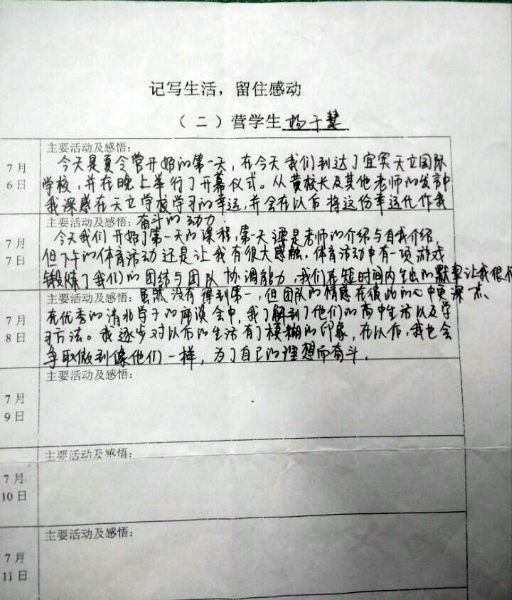 记写生活，留住感动
（二）营学生 杨千慧
主要活动及感悟：
7月
6日
今天是夏令营开始的第一天，在今天我们到达了宜宾天立国际
学校，并在晚上举行了开幕仪式。从黄校长及其他老师的发言中
我深感在天立学校学习的幸运，并会在以后将这份幸运化作我
主要活动及感悟：奋斗的动力
7月
7日
今天我们开始了第一天的课程，第一天课是老师的介绍与自我介绍，
但下午的体育活动还是让我有很大感触。体育活动中有一项游戏
锻炼了我们的团结与团队协调能力，我们在短时间内生出的默契让我很
主要活动及感悟：虽然没有得到第一，但团队的情感在彼此的心中更深一点
7月
8日
在优秀的清北学子的座谈会中，我了解到了他们的高中生活以及学
习方法。我逐步对以后的生活有了模糊的印象，在以后，我也会
争取做到像他们一样，为了自己的理想而奋斗。
主要活动及感悟：
7月
9日
主要活动及感悟：
7月
10日
主要活动及感悟：
7月
11日